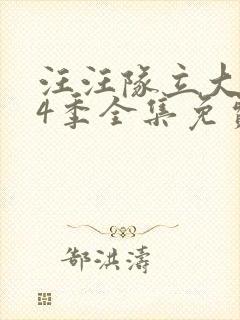 汪汪队立大
4季全集免费
郜洪涛